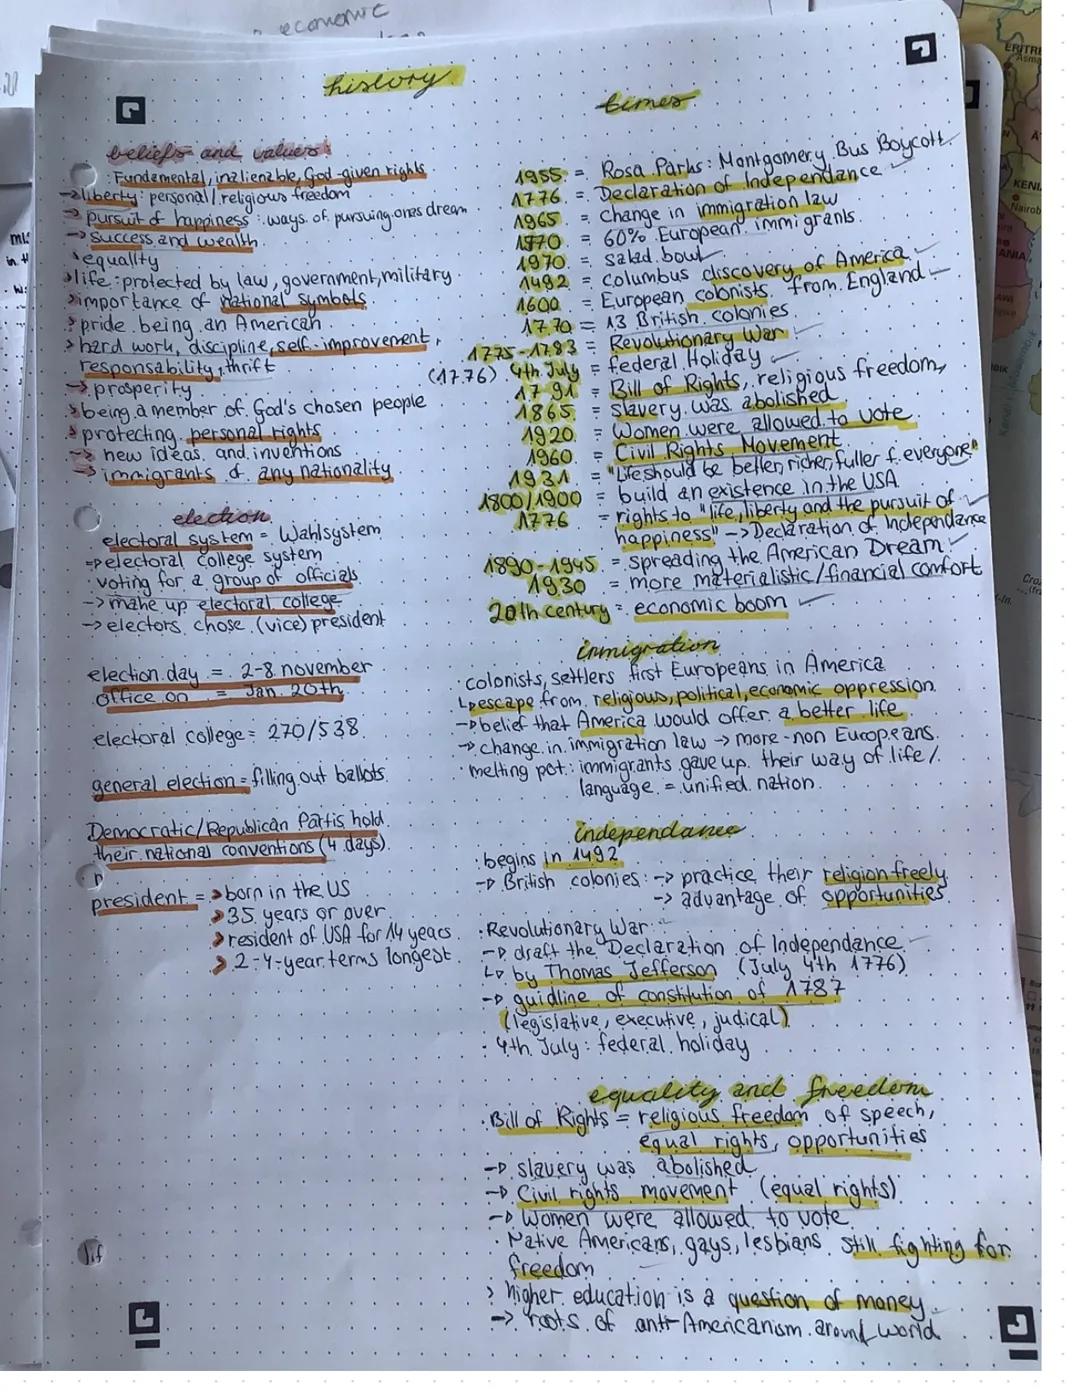 economic
history
beliefs and values:
: Fundamental, inalienable, God-given rights
→ liberty: personal / religious freedom
→ pursuit of happiness: ways of pursuing ones dream
→ success and wealth
equality
life: protected by law, government, military
importance of national symbols
pride being an American
hard work, discipline, self-improvement,
responsability, thrift
→ prosperity
being a member of God's chosen people
protecting personal rights
→ new ideas and inventions
immigrants of any nationality
election
electoral system = Wahlsystem
electoral college system
· voting for a group of officials
→ make up electoral college
→ electors chose (vice) president
election day = 2-8 november
office on = Jan. 20th
electoral college = 270/538
general election = filling out ballots
Democratic/Republican Partis hold
their national conventions (4 days)
president = > born in the US
> 35 years or over
> resident of USA for 14 years
> 2-4-year terms longest
times
1955 = Rosa Parks: Montgomery Bus Boycott
1776 = Declaration of Independance
1965 = Change in immigration law
1970 = 60% European immigrants
1970 = salad bowl
1492 = columbus discovery of America
1600 = European colonists from England
1770 = 13 British colonies
1775-1783 = Revolutionary War
(1776) 4th July = federal Holiday
1791 = Bill of Rights, religious freedom,
1865 = slavery was abolished
1920 = Women were allowed to vote
1960 = Civil Rights Movement
1931 = "Life should be better, richer, fuller f. everyone"
1800/1900 = build an existence in the USA
1776 = rights to "life, liberty and the pursuit of
happiness" → Declaration of Independance
1890-1945 = spreading the American Dream
1930 = more materialistic/financial comfort
20th century = economic boom
immigration
colonists, settlers first Europeans in America
↳ escape from religious, political, economic oppression
→ belief that America would offer a better life
→ change in immigration law → more non Europeans
· melting pot: immigrants gave up their way of life /
language = unified nation
independance
· begins in 1492
→ British colonies: → practice their religion freely
→ advantage of opportunities
· Revolutionary War
→ draft the Declaration of Independance
↳ by Thomas Jefferson (July 4th 1776)
→ guidline of constitution of 1787
(legislative, executive, judical)
· 4th July: federal holiday
equality and freedom
· Bill of Rights = religious freedom of speech,
equal rights, opportunities
→ slavery was abolished
→ Civil rights movement (equal rights)
→ Women were allowed to vote
· Native Americans, gays, lesbians still fighting for
freedom
> higher education is a question of money
→ roots of anti-Americanism around world
ERITRE
Asma
KENI
Nairob
ANIA